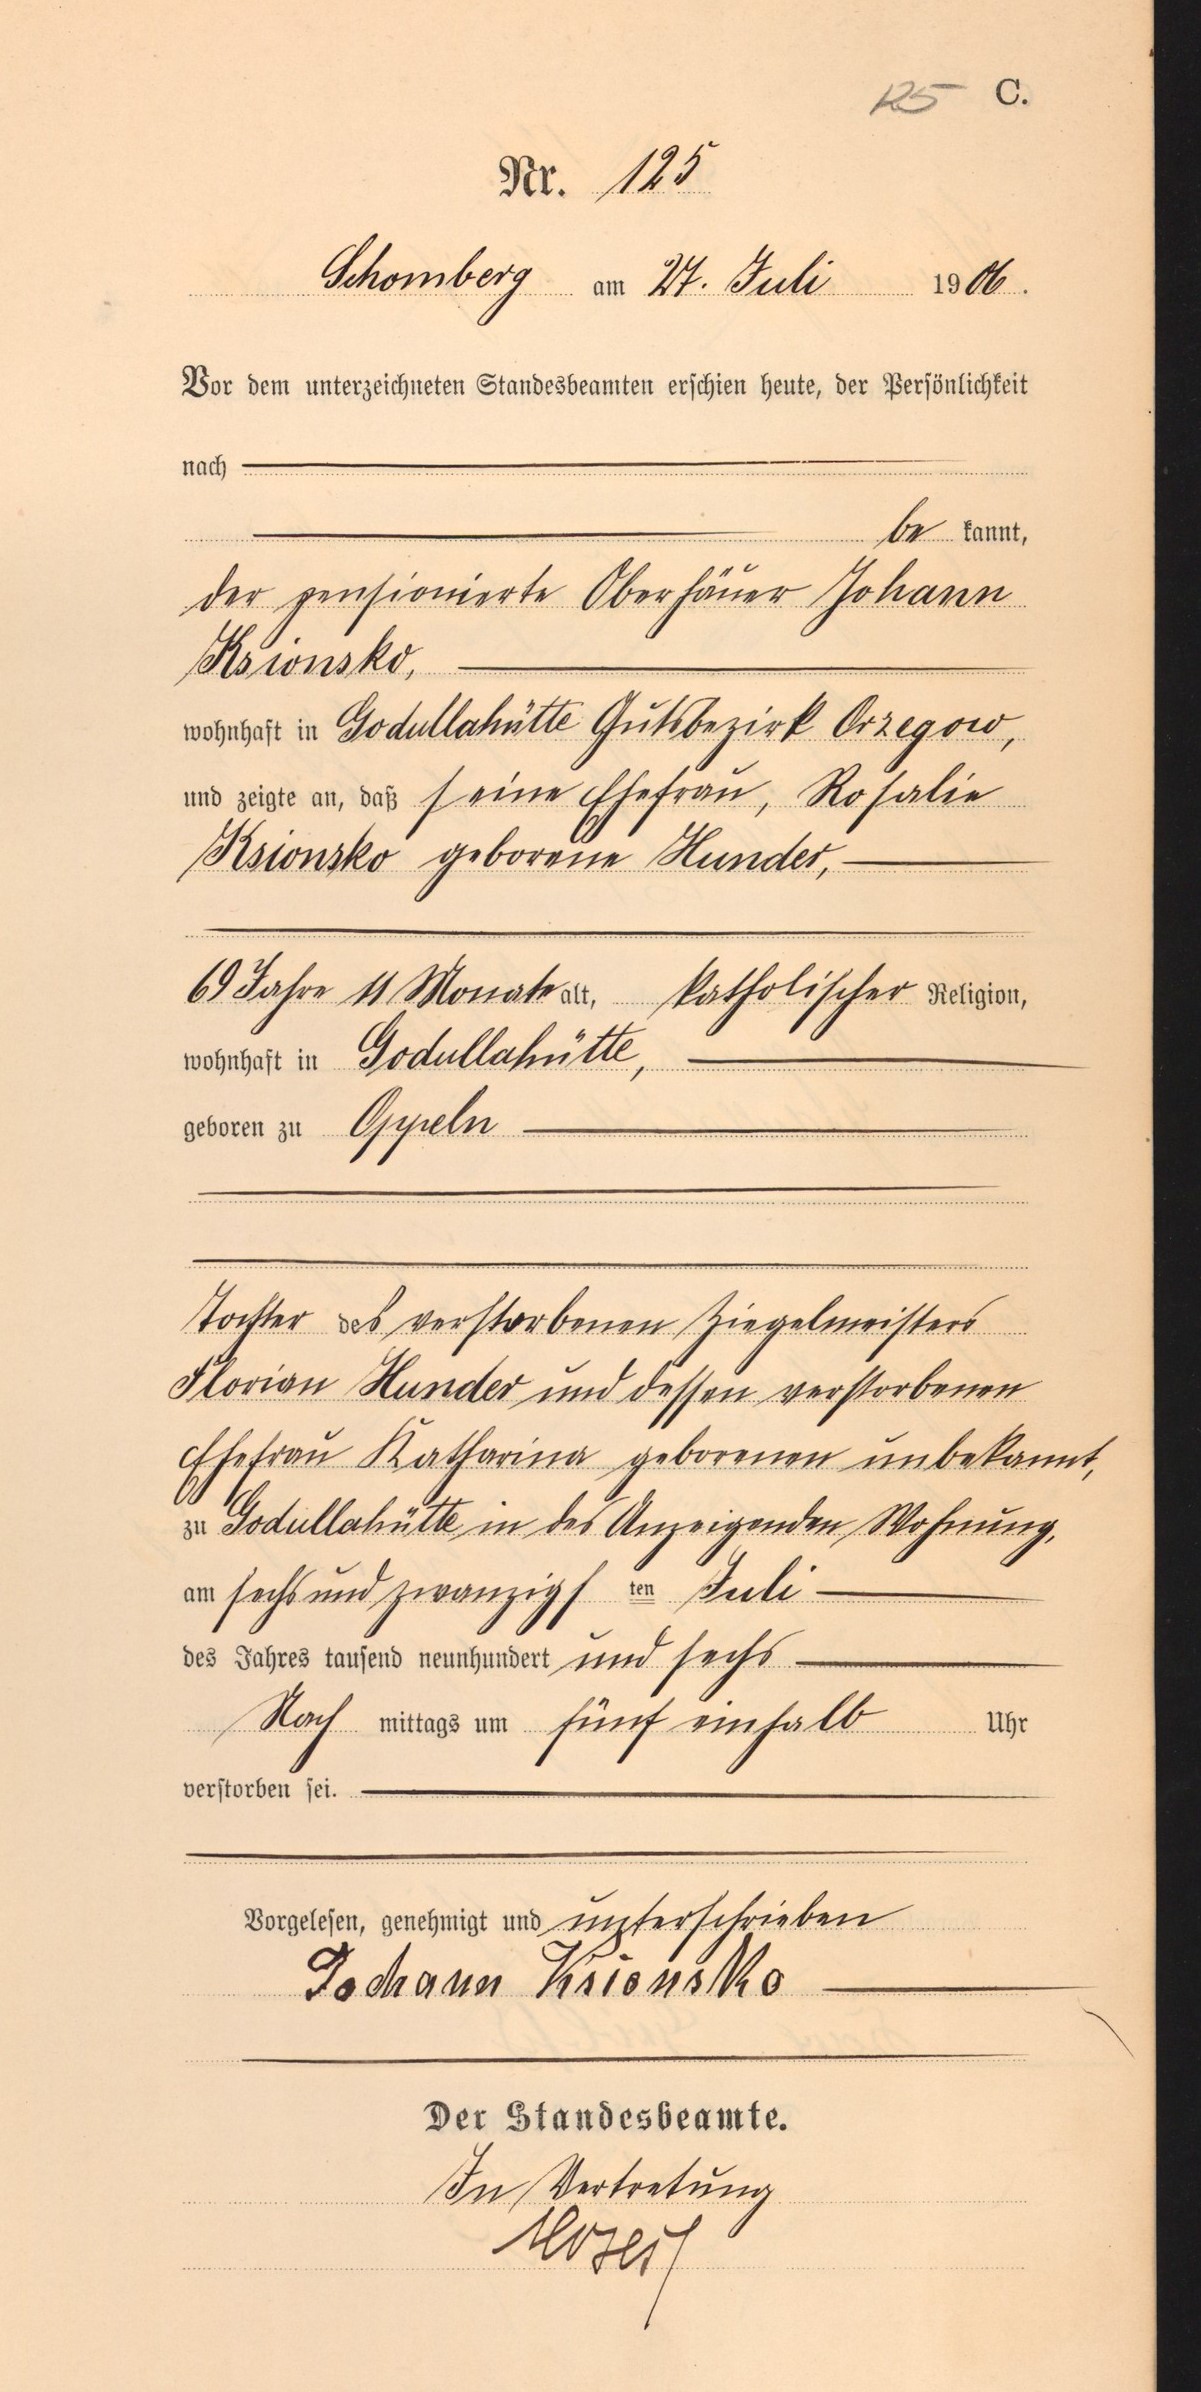 125 C.
Nr. 125
Schomberg am 27. Juli 1906.
Vor dem unterzeichneten Standesbeamten erschien heute, der Persönlichkeit
nach
be kannt,
der pensionierte Oberhäuer Johann
Ksionsko,
wohnhaft in Godullahütte Gutsbezirk Orzegow,
und zeigte an, daß seine Ehefrau, Rosalie
Ksionsko geborene Hunder,
69 Jahre 11 Monate alt, katholischer Religion,
wohnhaft in Godullahütte,
geboren zu Oppeln
Tochter des verstorbenen Ziegelmeisters
Florian Hunder und dessen verstorbenen
Ehefrau Katharina geborenen unbekannt,
zu Godullahütte in des Anzeigenden Wohnung,
am sechs und zwanzigs ten Juli
des Jahres tausend neunhundert und sechs
Nach mittags um fünf einhalb Uhr
verstorben sei.
Vorgelesen, genehmigt und unterschrieben
Johann Ksionsko
Der Standesbeamte.
In Vertretung